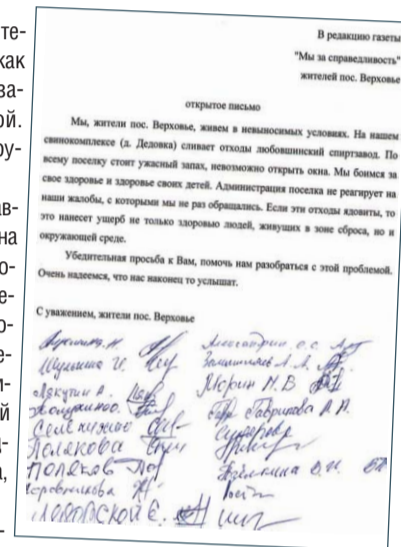 те-
как
за-
ой.
ру-
ав-
на
о-
е-
о-
е-
и-
й
д-
а,
-
В редакцию газеты
"Мы за справедливость"
жителей пос. Верховье
открытое письмо
Мы, жители пос. Верховье, живем в невыносимых условиях. На нашем
свинокомплексе (д. Дедовка) сливает отходы любовшинский спиртзавод. По
всему поселку стоит ужасный запах, невозможно открыть окна. Мы боимся за
свое здоровье и здоровье своих детей. Администрация поселка не реагирует на
наши жалобы, с которыми мы не раз обращались. Если эти отходы ядовиты, то
это нанесет ущерб не только здоровью людей, живущих в зоне сброса, но и
окружающей среде.
Убедительная просьба к Вам, помочь нам разобраться с этой проблемой.
Очень надеемся, что нас наконец то услышат.
С уважением, жители пос. Верховье
Шульгина И.
Лякутин
Морин М.В
Гаврикова
Полякова
Поляков